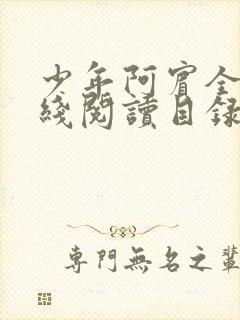 少年阿賓全
綫閱讀目録
專門無名之輩